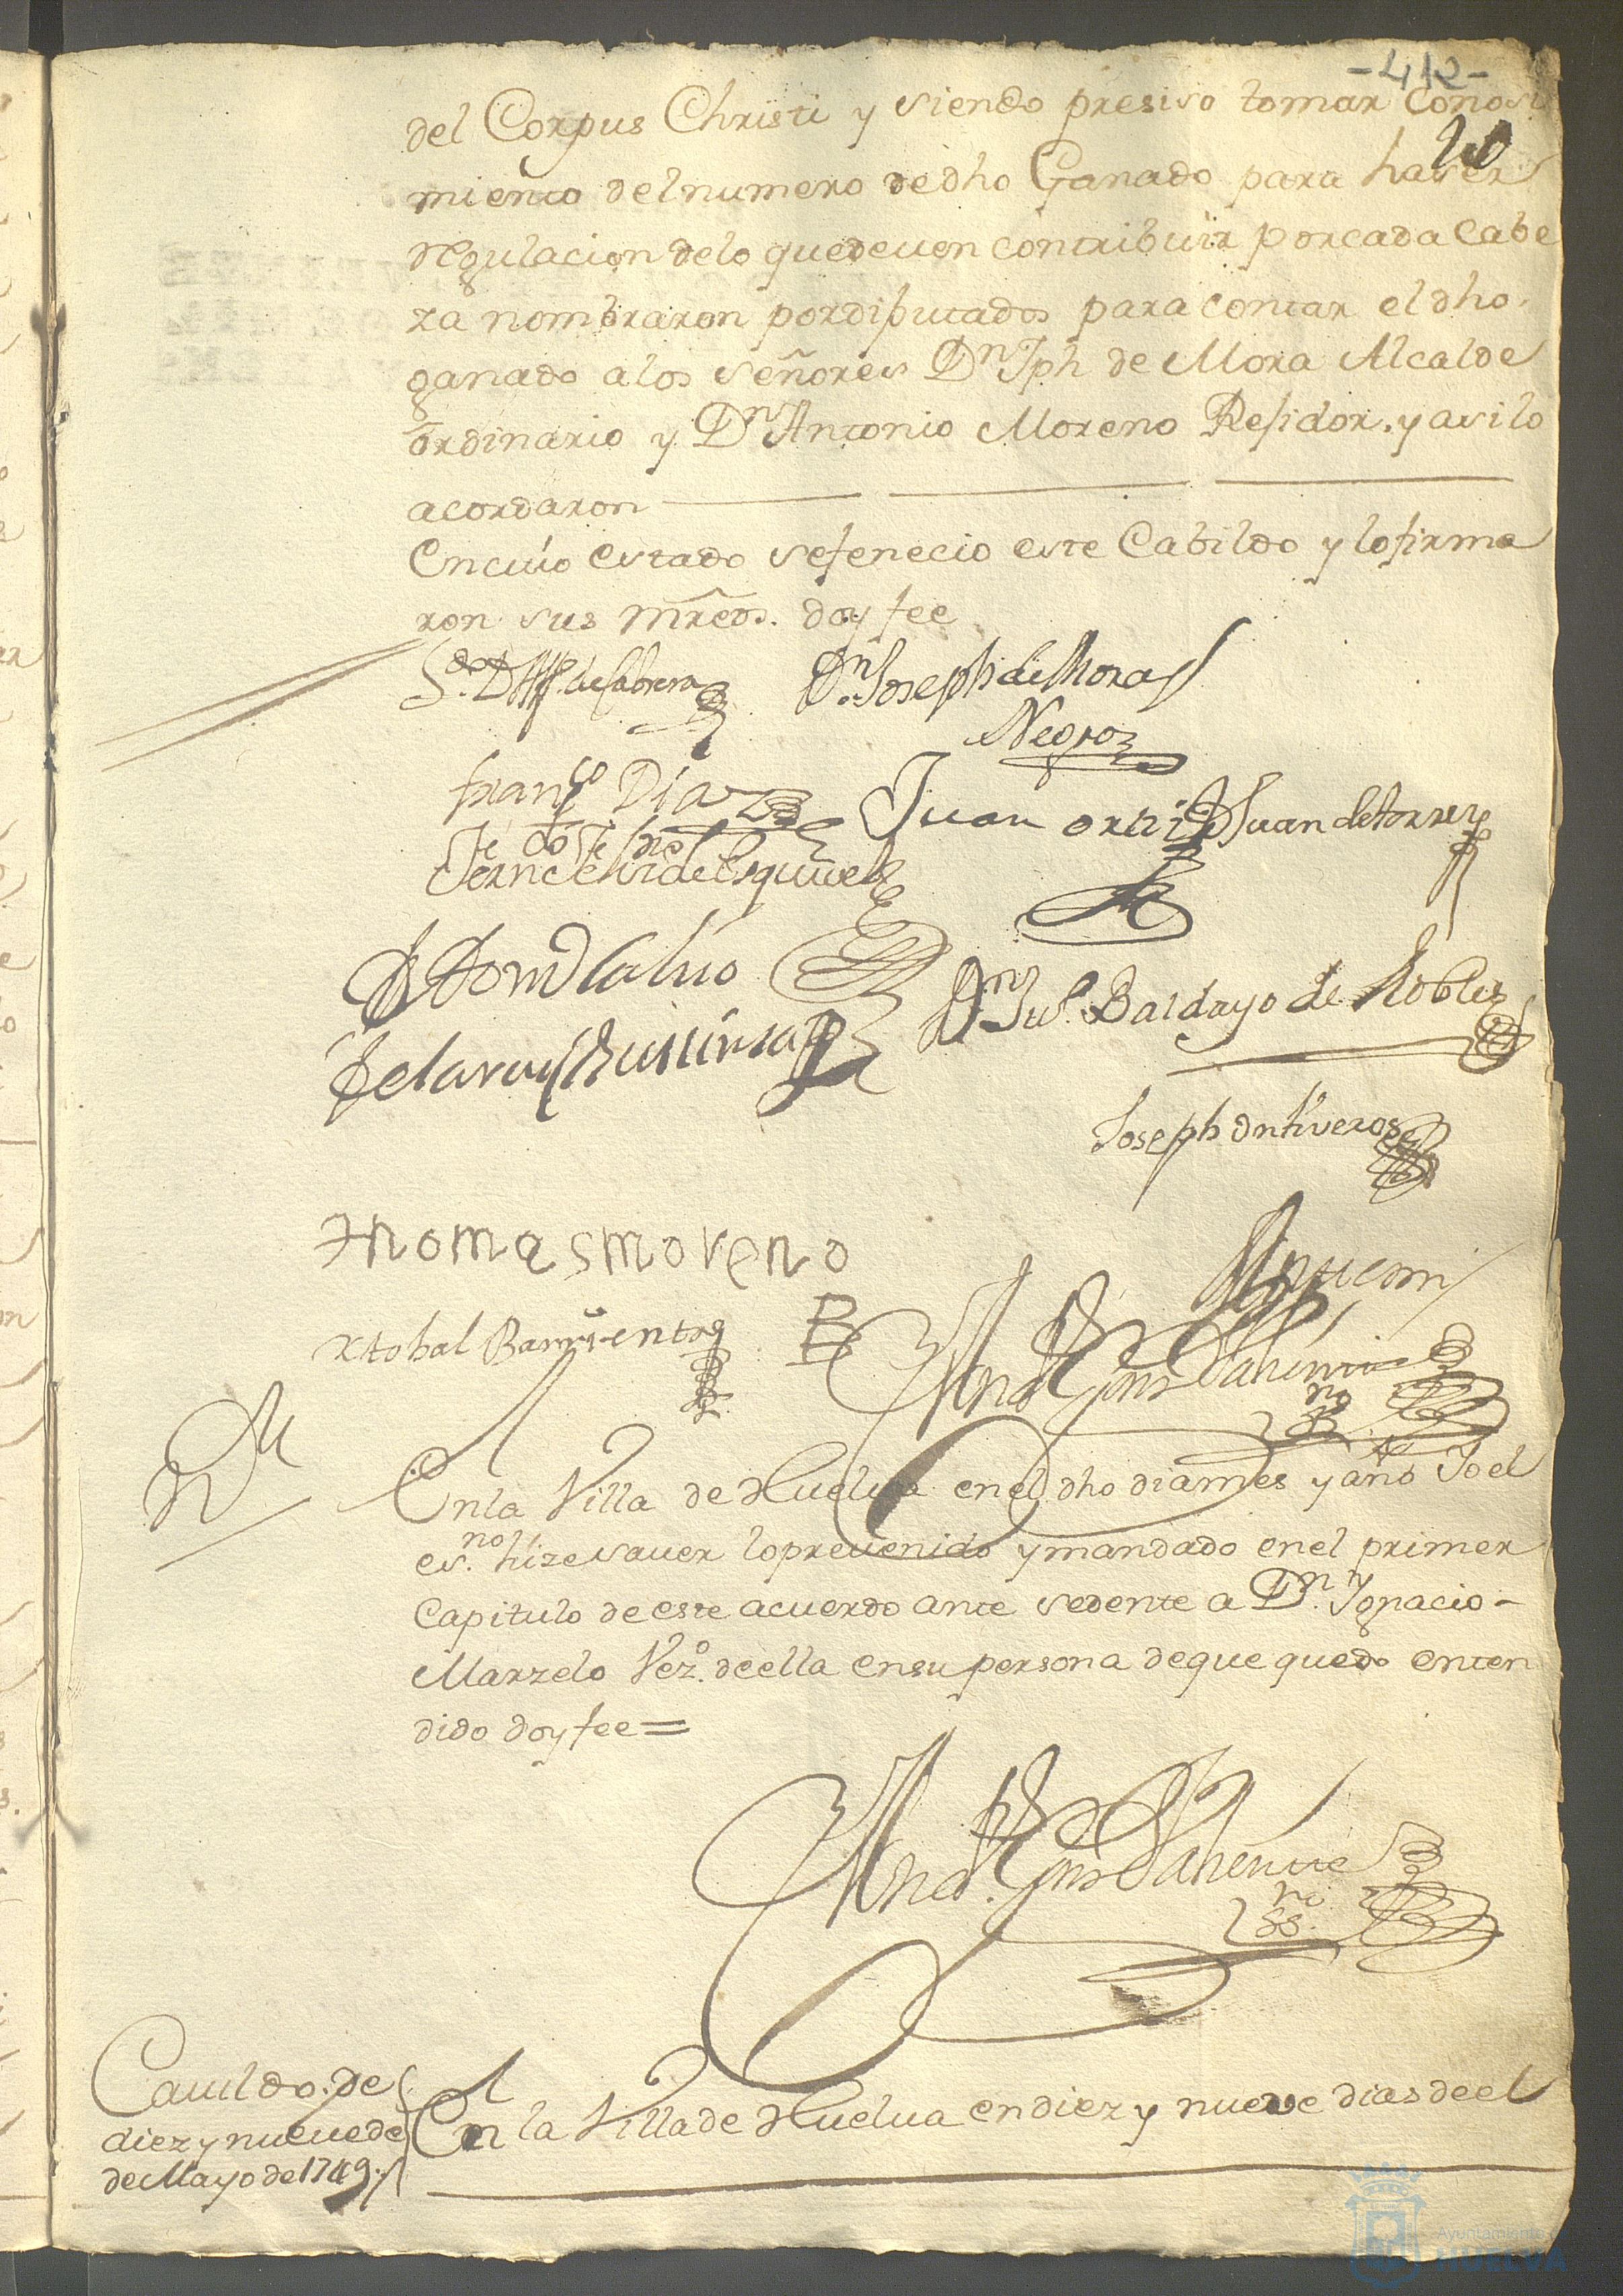 -412-
20
del Corpus Christi y siendo presiso tomar conosi
miento del numero de dho Ganado para haser
regulacion de lo que deven contribuir por cada Cabe
za nombraron por diputados para contar el dho.
ganado a los señores Dn Jph de Mora Alcalde
ordinario y Dn Antonio Moreno Residor. y asi lo
acordaron
En cuio estado se fenecio este Cabildo y lo firma
ron sus mrcds. doy fee
de Cabrera
Dn Joseph de Mora
Negro
Franco Diaz
Juan ortiz
Juan de torres
de Esquivel
Dn Jul. Baldayo de Robles
Joseph Ontiveros
thomas moreno
Xtobal Barrientos
Ante mi
no
En la Villa de Huelva en el dho dia mes y año Yo el
es.no hize saver lo prevenido y mandado en el primer
Capitulo de este acuerdo ante sedente a Dn. Ygnacio
Marzelo Vezo. de ella en su persona de que quedo enten
dido doy fee =
no
ss.
Cavildo. de
diez y nueve de
de Mayo de 1749.
En la Villa de Huelva en diez y nueve dias de el
Ayuntamiento
HUELVA